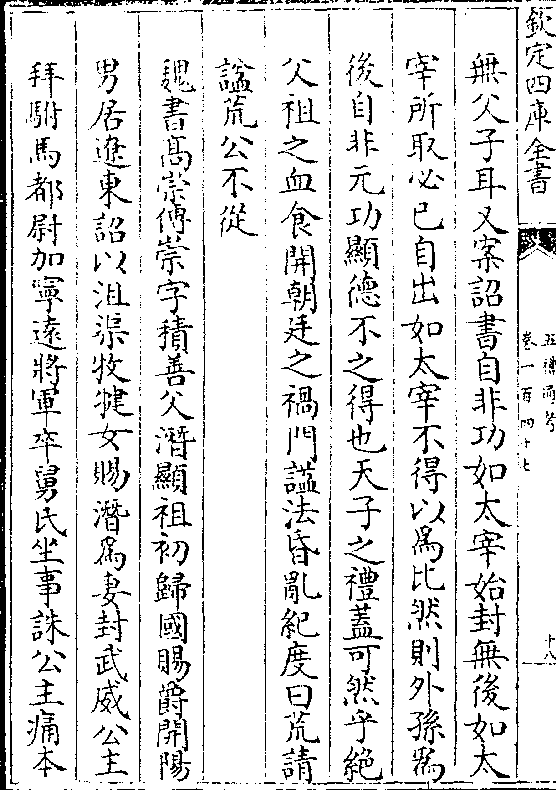 欽定四庫全書
五禮通考
卷一百四十七
十八
無父子耳又案詔書自非功如太宰始封無後如太
宰所取必已自出如太宰不得以為比然則外孫為
後自非元功顯德不之得也天子之禮蓋可然乎絶
父祖之血食開朝廷之禍門諡法昏亂紀度曰荒請
諡荒公不從
魏書髙崇傅崇字積善父潛顯祖初歸國賜爵開陽
男居遼東詔以沮渠牧犍女賜潛為妻封武威公主
拜駙馬都尉加寧逺將軍卒舅氏坐事誅公主痛本